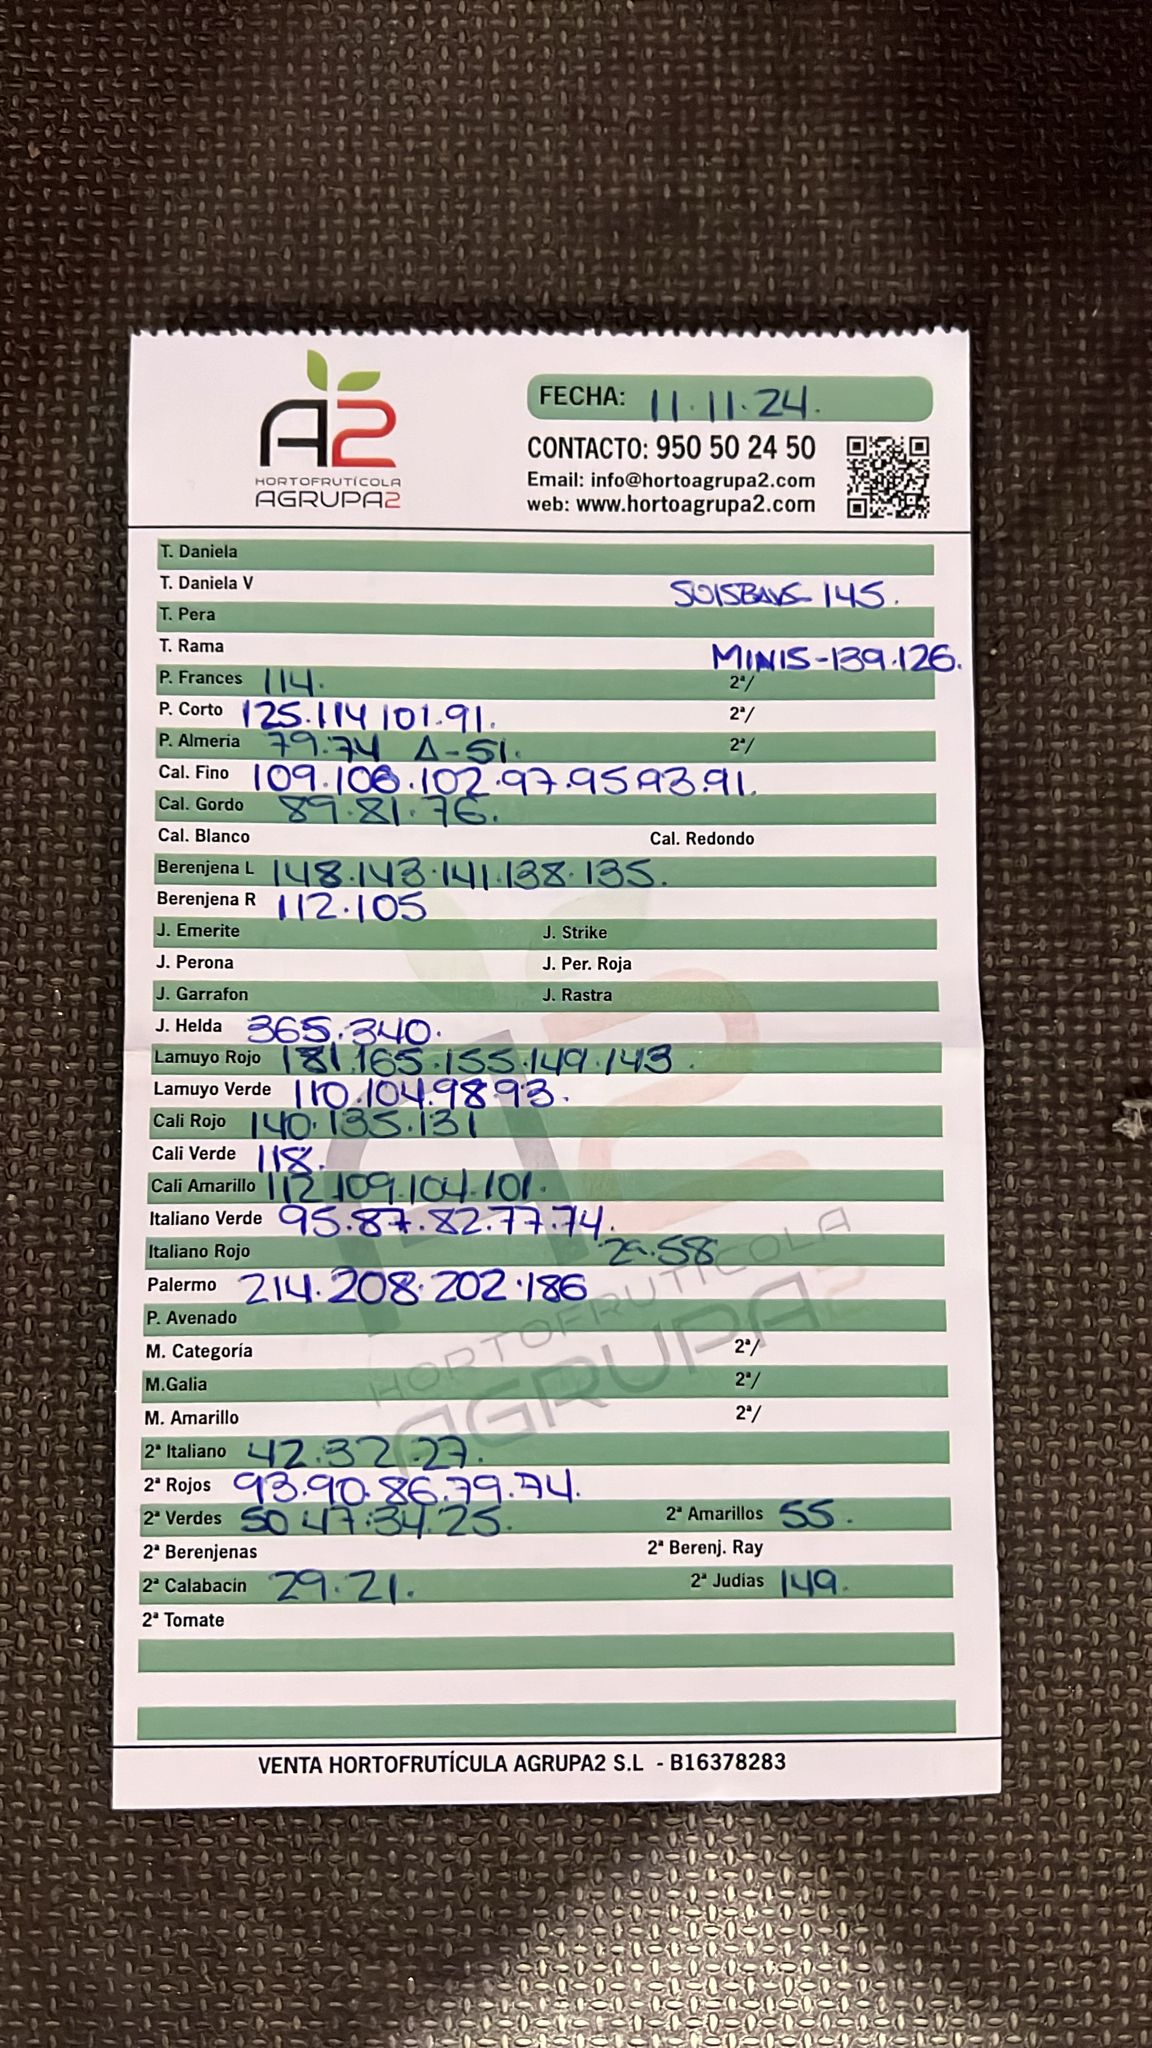 A2
HORTOFRUTÍCOLA
AGRUPA2
FECHA: 11.11.24.
CONTACTO: 950 50 24 50
Email: info@hortoagrupa2.com
web: www.hortoagrupa2.com
T. Daniela
T. Daniela V 145.
T. Pera
T. Rama MINIS-139.126.
P. Frances 114. 2ª/
P. Corto 125.114 101.91. 2ª/
P. Almeria 79.74 Δ-51. 2ª/
Cal. Fino 109.106.102.97.95.93.91.
Cal. Gordo 89.81.76.
Cal. Blanco Cal. Redondo
Berenjena L 148.143.141.138.135.
Berenjena R 112.105
J. Emerite J. Strike
J. Perona J. Per. Roja
J. Garrafon J. Rastra
J. Helda 365.340.
Lamuyo Rojo 181.165.155.149.143.
Lamuyo Verde 110.104.98.93.
Cali Rojo 140.135.131
Cali Verde 118.
Cali Amarillo 112.109.104.101.
Italiano Verde 95.87.82.77.74.
Italiano Rojo 2ª.58
Palermo 214.208.202.186
P. Avenado
M. Categoría 2ª/
M.Galia 2ª/
M. Amarillo 2ª/
2ª Italiano 42.32.27.
2ª Rojos 93.90.86.79.74.
2ª Verdes 50 47.34.25. 2ª Amarillos 55.
2ª Berenjenas 2ª Berenj. Ray
2ª Calabacín 29.21. 2ª Judias 149.
2ª Tomate
HORTOFRUTÍCOLA
AGRUPA2
VENTA HORTOFRUTÍCULA AGRUPA2 S.L - B16378283